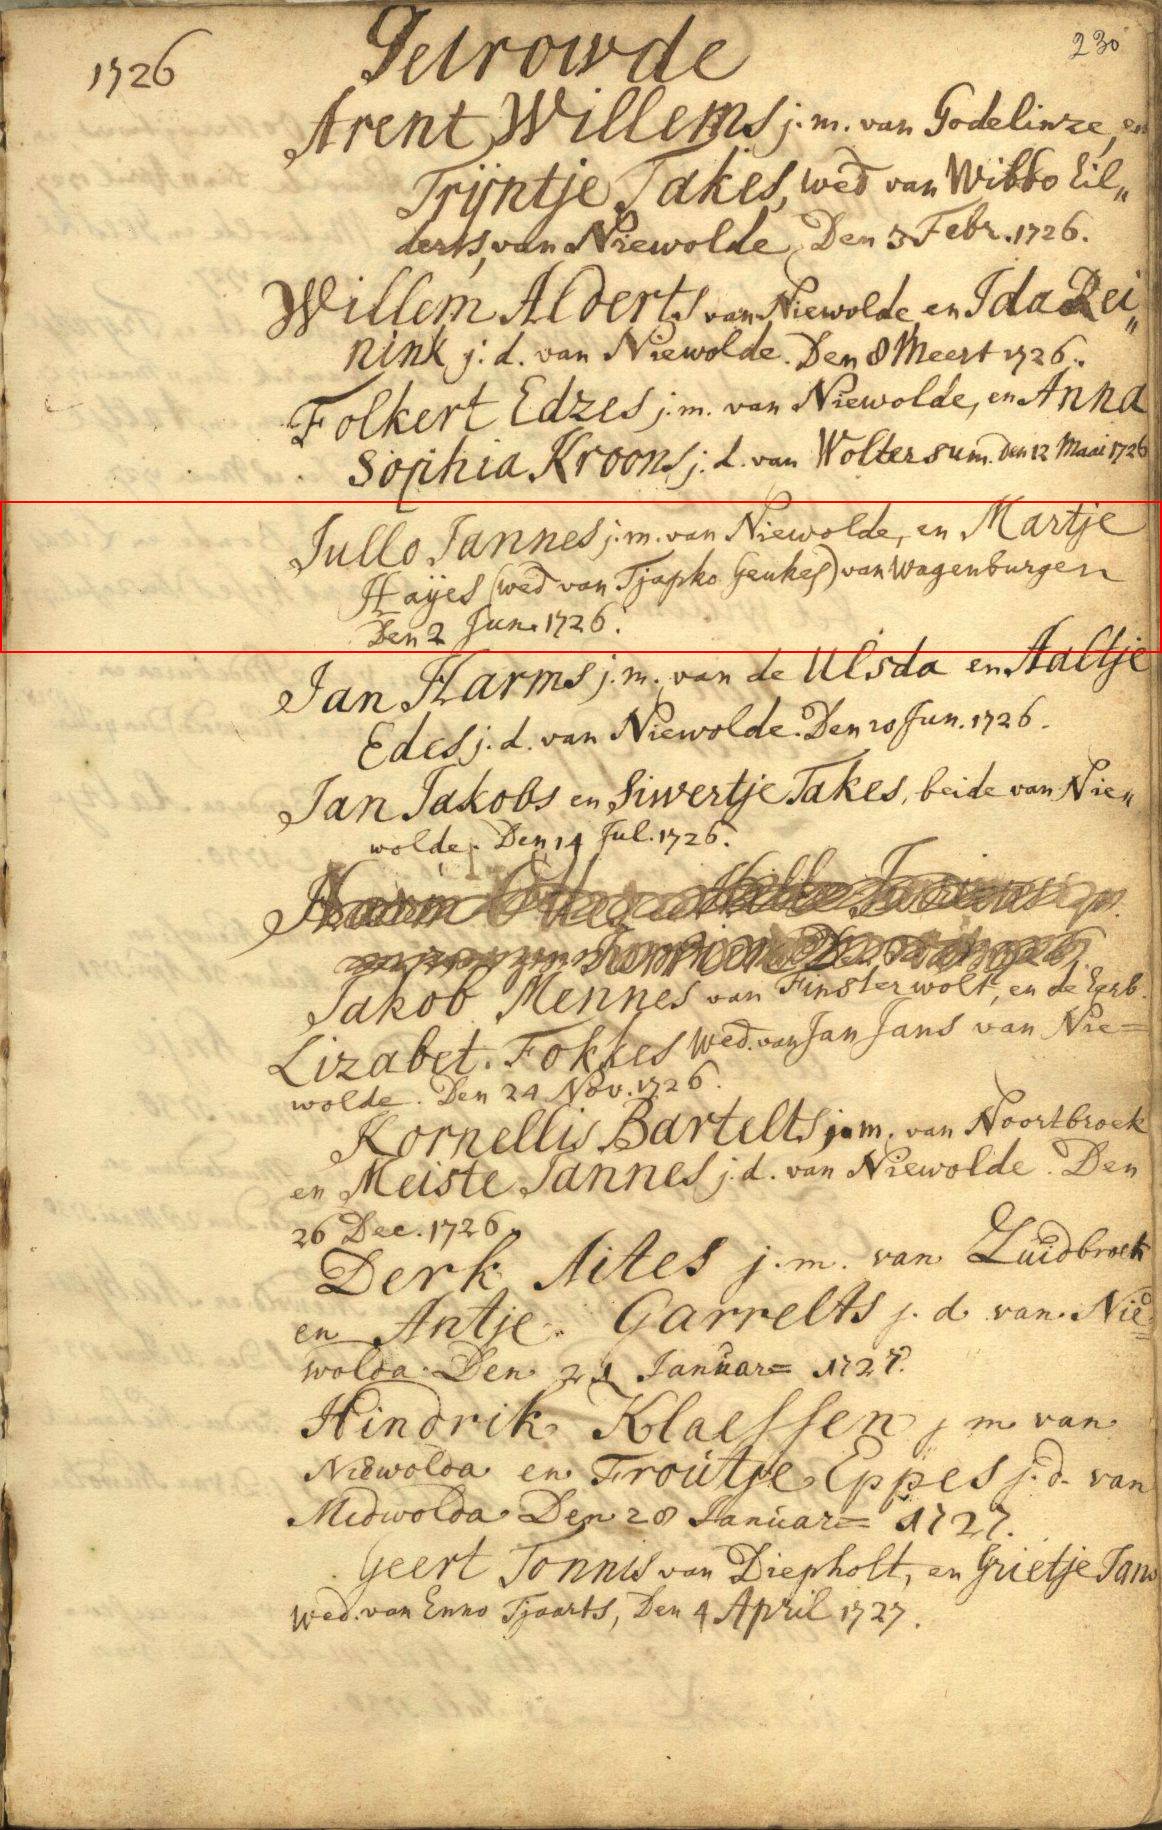 230
1726
Getrowde
Arent Willems j.m. van Godelinze, en
Trijntje Takes, wed van Wibbo Eil„
derts, van Niewolde, Den 3 Febr. 1726.
Willem Alderts van Niewolde, en Ida Rei„
nink j. d. van Niewolde. Den 8 Meert 1726.
Folkert Edzes j.m. van Niewolde, en Anna
Sophia Kroons j. d. van Woltersum. den 12 Maai 1726
Jullo Jannes j.m. van Niewolde, en Martje
Hayes (wed van Tjapko Geukes) van Wagenburgen
Den 2 Jun. 1726.
Jan Harms j.m. van de Ulsda en Aaltje
Edes j. d. van Niewolde. Den 20 Jun. 1726.
Jan Jakobs en Siwertje Takes, beide van Nie„
wolde. Den 14 Jul. 1726.
Harm
Jakob Mennes van Finsterwolt, en de Eerb.
Lizabet Fokkes wed. van Jan Jans van Nie=
wolde. Den 24 Nov. 1726.
Kornellis Bartelts j.m. van Noortbroek
en Meiste Jannes j.d. van Niewolde. Den
26 Dec. 1726
Derk Aites j.m. van Zuidbroek
en Antje Garrelts j. d. van Nie=
wolda Den 21 Januar= 1727.
Hindrik Klaessen j m van
Niewolda en Froutje Eppes j. d. van
Midwolda Den 28 Januar= 1727.
Geert Tonnis van Diepholt, en Grietje Jans
wed. van Enno Tjaarts, Den 4 April 1727.